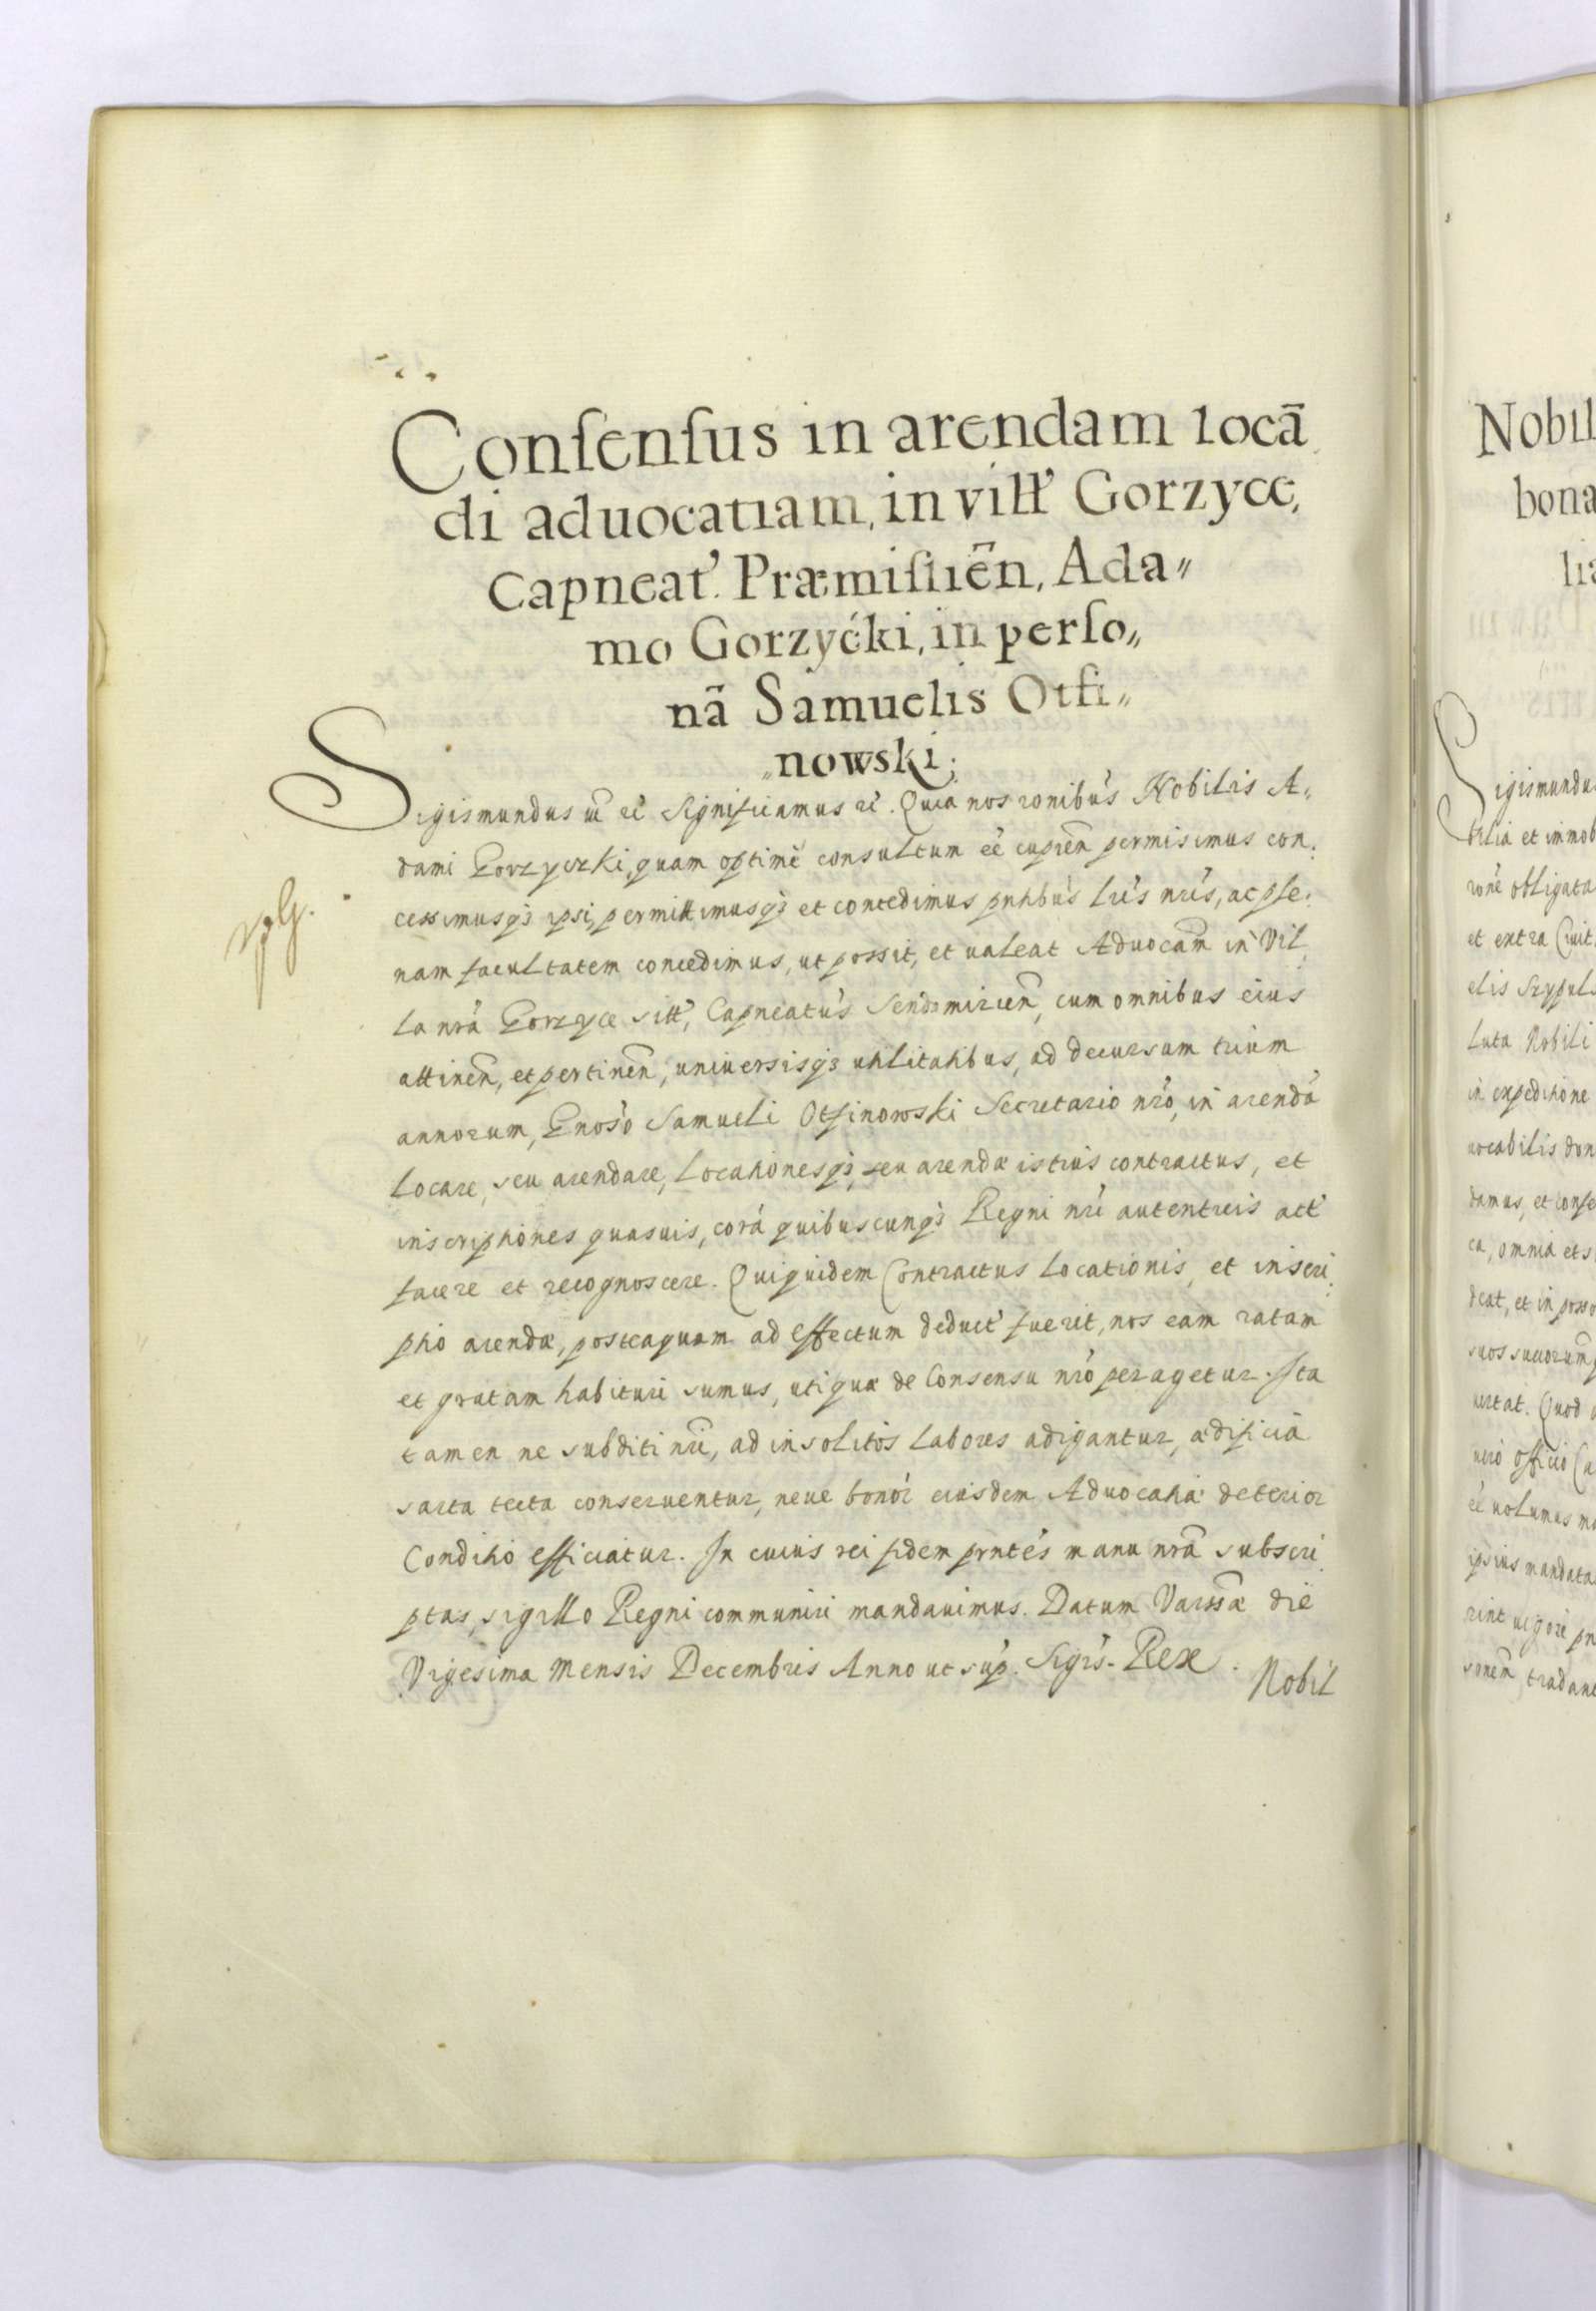 Conſenſus in arendam locã
di aduocatiam, in vill' Gorzyce,
Capneat'. Præmiſlień, Ada〃
mo Gorzyćki, in perſo〃
nã Samuelis Otfi〃
〃nowski;
Sigismundus III etc Significamus etc. Quia nos ronibus Nobilis A〃
dami Gorzyczki, quam optimè consultum eē cupień permisimus con:
cessimusq3 ipsi, permittimusq3 et concedimus pntibus lris nris, ac ple:
nam facultatem concedimus, ut possit, et ualeat Aduocam in Vil
la nrã Gorzyce sitt, Capneatus Sendomirień, cum omnibus eius
attineñ, et pertineñ, uniuersisq3 utilitatibus, ad decursum trium
annorum, Gnoso Samueli Otfinowski Secretario nro, in arendã
Locare, seu arendare, Locationesq3, seu arendæ istius contractus, et
inscriptiones quasuis, corã quibuscunq3 Regni nri autenticis act'
facere et recognoscere. Quiquidem Contractus locationis, et inscri
ptio arendæ, posteaquam ad effectum deduct' fuerit, nos eam ratam
et gratam habituri sumus, utiquæ de Consensu nro peragetur. Ita
tamen ne subditi nri, ad insolitos Labores adigantur, ædificia
sarta tecta conseruentur, neue bonor eiusdem Aduocatiæ deterior
Conditio efficiatur. In cuius rei fidem prntes manu nrã subscri
ptas, sigillo Regni communiri mandauimus. Datum Varssæ die
Vigesima Mensis Decembris Anno ut sup. Sigis. Rex.
Nobil
Nobil
bona
lia
Sigismundus
bilia et immob
ione obligata
et extra Ciuit
elis Szypul
luta Nobili
in expeditione
uocabilis don
damus, et conse
ca, omnia et s
deat, et in posse
suos succorum
uertat. Quod
uero officio Ca
eē uolumus
ipsius mandata
rint uigore pn
sonem tradant